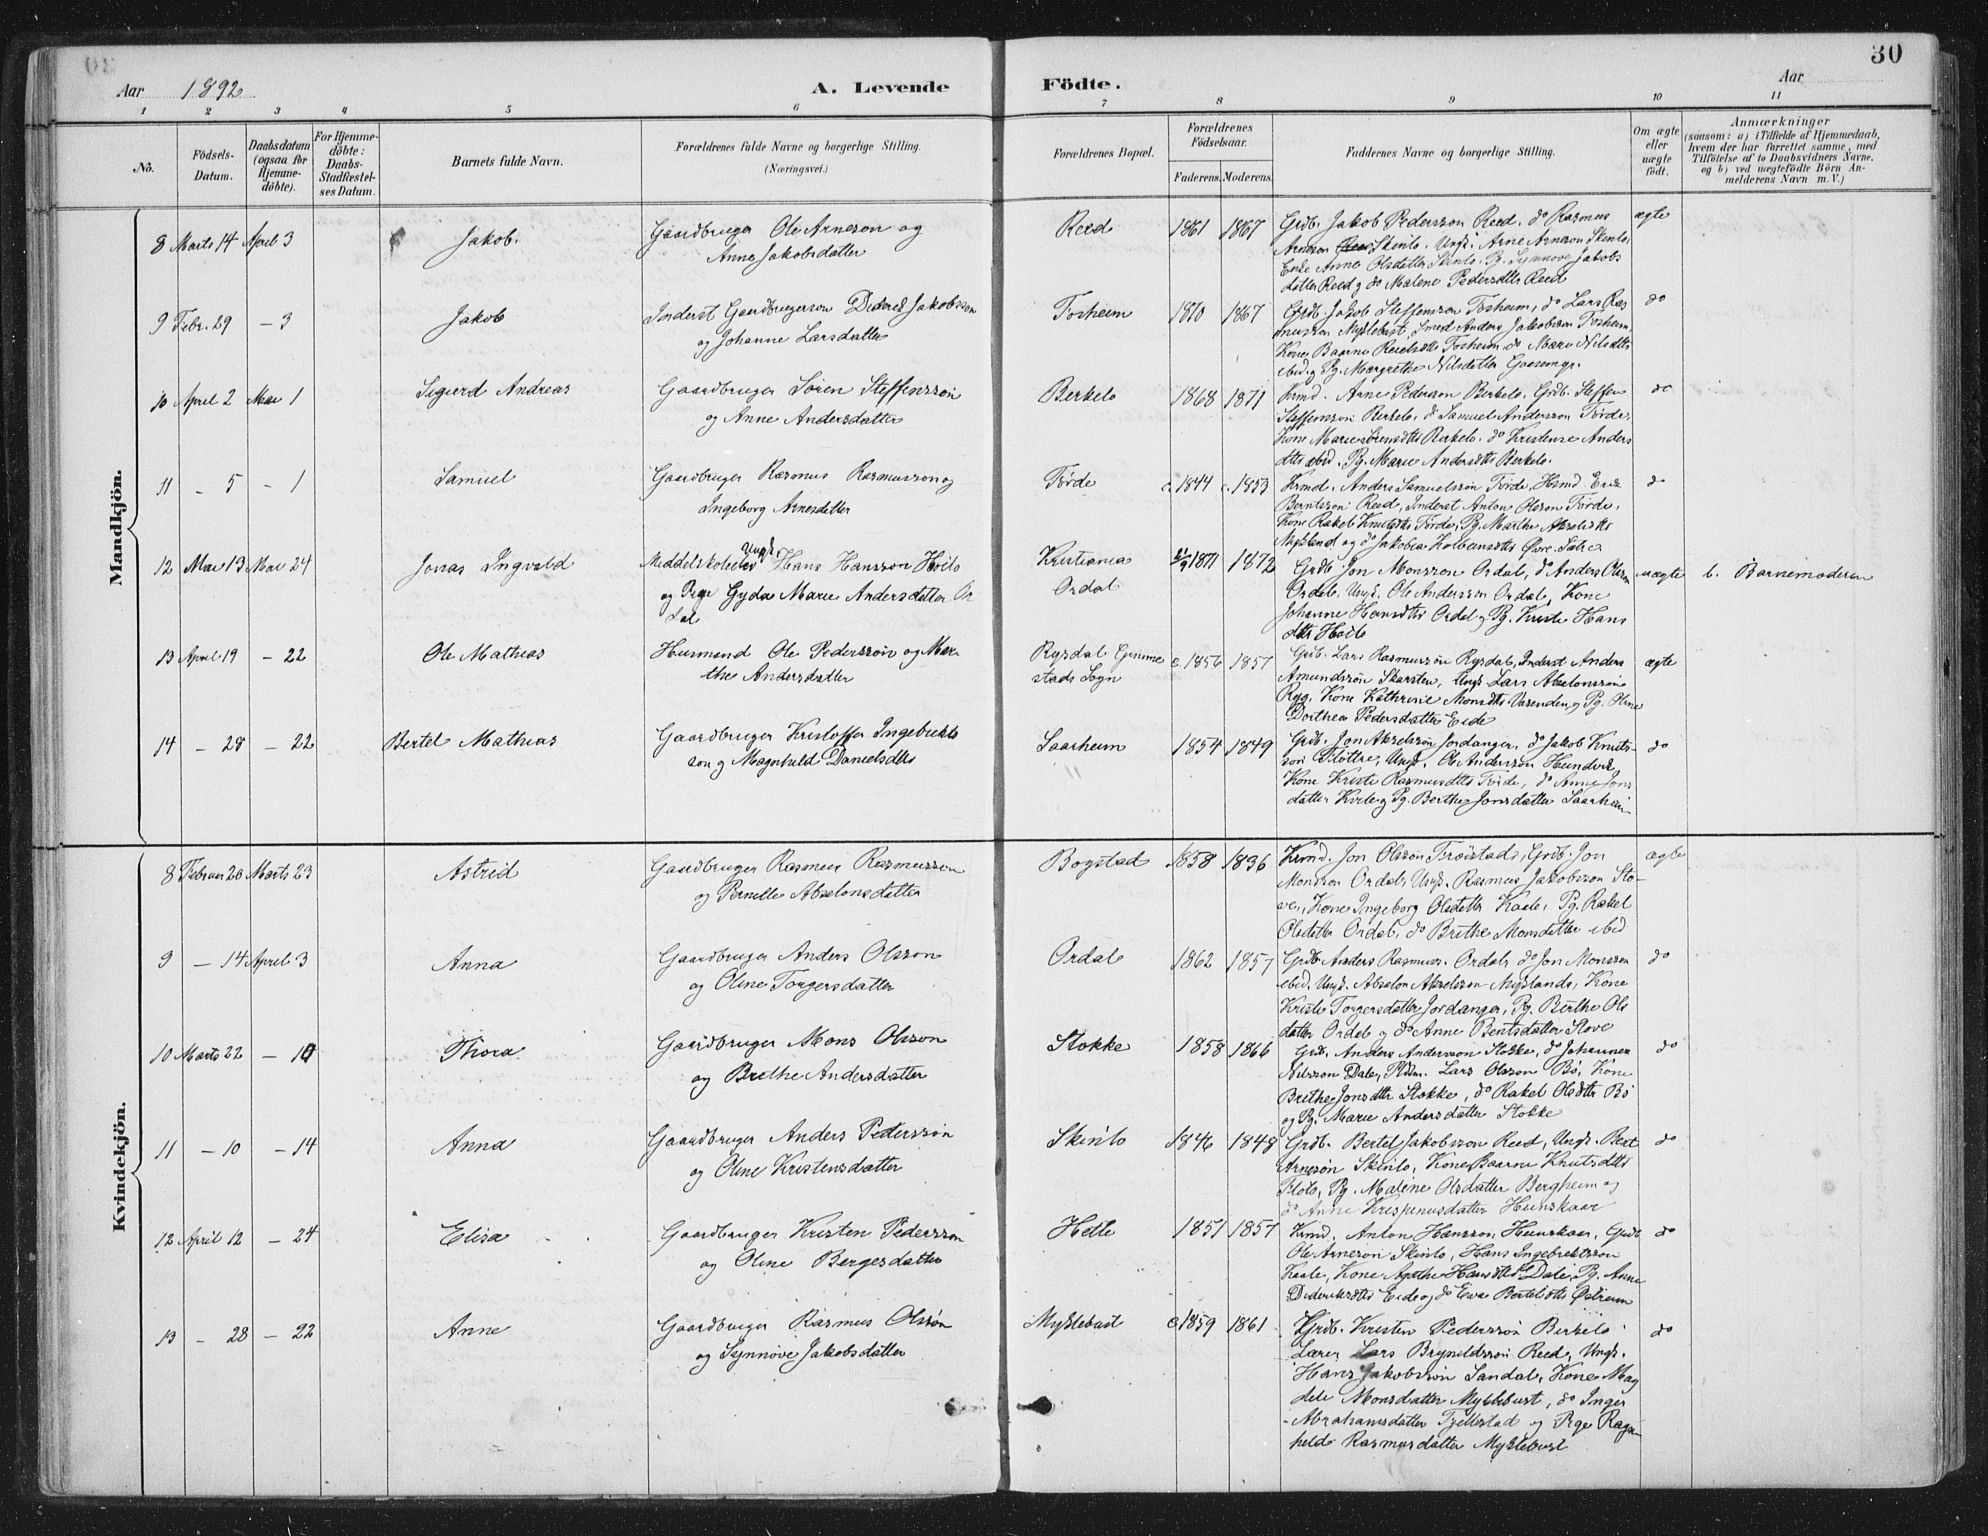 30
Aar 1892.
A. Levende Födte.
Aar
1 2 3 4 5 6 7 8 9 10 11
No.
Födsels-Datum.
Daabsdatum (ogsaa for Hjemme-döbte).
For Hjemme-döbte: Daabs-Stadfæstel-ses Datum.
Barnets fulde Navn.
Forældrenes fulde Navne og borgerlige Stilling.
(Næringsvei.)
Forældrenes Bopæl.
Forældrenes Födselsaar.
Faderens. Moderens.
Faddernes Navne og borgerlige Stilling.
Om ægte eller uægte födt.
Anmærkninger
(saasom: a) i Tilfælde af Hjemmedaab,
hvem der har forrettet samme, med
Tilföielse af to Daabsvidners Navne,
og b) ved uægtefödte Börn An-
melderens Navn m. V.)
Mandkjön.
8 Marts 14 April 3 Jakob. Gaardbruger Ole Arneson og
Anne Jakobsdatter
Reed 1861 1867 Grdb. Jakob Pederssön Reed. do Rasmus
Arneson Skinlo. Ungk. Arne Arneson Skinlo,
Enke Anne Olsdatter Skinlo. Pg. Synnøve Jakobs
datter Reed og do Malene Pedersdtr Reed
ægte
9 Febr. 29 - 3 Jakob Inderst Gaardbrugersøn Diderik Jakobsson
og Johanne Larsdatter
Tosheim 1870 1867 Grdb. Jakob Steffensson Tosheim, do Lars Ras
musson Myklebust, Smed Anders Jakobsson Tosheim,
Kone Baarne Tosheim do Marie Nilsdtr
ibid. og Pg. Margrethe Nilsdatter
do
10 April 2 Mai 1 Sigurd Andreas Gaardbruger Søren Steffensson
og Anne Andersdatter
Berkelo 1868 1871 Krmd. Arne Pedersson Berkelo, Grdb. Steffen
Steffensson Berkelo, do Samuel Andersson Førde,
Kone Marie Sørensdtr Berkelo. do Kristense Anders
dtr ibid. Pg. Marie Andersdtr Berkelo.
do
11 - 5 - 1 Samuel Gaardbruger Rasmus Rasmusson og
Ingeborg Arnesdatter
Førde c. 1844 c. 1853 Krmd. Anders Samuelssøn Førde, Hsmd Erik
Berntsson Reed, Inderst Anton Olsson Førde,
Kone Rakel Knutsdtr Førde, Pg. Marthe Akselsdtr
Mykland og do Jakobea Kolbeinsdtr Øvre-Sætre
do
12 Mai 13 Mai 24 Jonas Ingvald Middelskoleelev Ungk. Hans Hansson Hoilo
og Pige Gyda Marie Andersdatter Or
dal
Kristiania
Ordal
21/9 1871 1872 Grdb Jon Monsson Ordal, do Anders Olsson
Ordal, Ungk. Ole Andersson Ordal, Kone
Johanne Hansdtr Ordal og Pg. Kriste Hans
dtr Hoilo
uægte b. Barnemoderen
13 April 19 - 22 Ole Mathias Husmand Ole Pederssøn og Mar
the Andersdatter
Rygdal Gimme
stads Sogn
c. 1856 1857 Grdb. Lars Rasmussøn Rygdal, Inderst Anders
Amundssøn Skarsten, Ungk Lars Absalonssøn
Ryg, Kone Kathrine Monsdtr Vereide og Pg. Oline
Dorthea Pedersdatter Eide
ægte
14 - 28 - 22 Bertel Mathias Gaardbruger Kristoffer Ingebrikts
son og Magnhild Danielsdtr
Saarheim 1854 1849 Grdb. Jon Akselssøn Jordanger, do Jakob Knuts-
son Fløttre, Ungk. Ole Anderssøn Hundvik,
Kone Kriste Rasmusdtr Førde, do Anne Jons
datter Kvile og Pg. Berthe Jonsdatter Saarheim
do
Kvindekjön.
8 Februar 28 Marts 23 Astrid Gaardbruger Rasmus Rasmusson
og Pernille Absalonsdatter
Bogstad 1858 1836 Krmd. Jon Olsson Frøistad, Grdb. Jon
Monsson Ordal, Ungk. Rasmus Jakobsson Sto-
ve, Kone Ingeborg Olsdatter Kaale, Pg. Rakel
Olsdatter Ordal, do Brithe Monsdatter ibid
ægte
9 - 14 April 3 Anna Gaardbruger Anders Olsson
og Oline Torgersdatter
Ordal 1862 1857 Grdb Anders Rasmuss. Ordal, do Jon Monsson
ibid. Ungk. Absalon Akselsson Mykland, Kone
Kriste Torgersdatter Jordanger, Pg. Berthe Ols
datter Ordal og do Anne Bentsdatter Stove
do
10 Marts 22 - 10 Thora Gaardbruger Mons Olsson
og Brithe Andersdatter
Stokke 1858 1866 Grdb. Anders Andersson Stokke, do Johannes
Nilsson Dale, Lars Olsson Bø, Kone
Brithe Jonsdtr Stokke, do Rakel Olsdtr Bø
og Pg. Marie Andersdatter Stokke
do
11 - 10 - 14 Anna Gaardbruger Anders Pederssøn
og Oline Kristensdatter
Skinlo 1846 1848 Grdb. Bertel Jakobsson Reed, Ungk. Bert
Arnesøn Skinlo, Kone Baarne Knutsdtr
Flolo, Pg. Malene Olsdatter Bergheim og
do Anne Krispenusdatter Hunskaar
do
12 April 12 - 24 Elisa Gaardbruger Kristen Pederssøn
og Oline Bergesdatter
Hetle 1851 1857 Krmd. Anton Hansson Hunskaar, Grdb.
Ole Arneson Skinlo, Hans Ingebriktsson
Kaale, Kone Agathe Hansdtr Dale, Pg. Anne
Dideriksdtr Eide og do Eva Bertelsdtr Østrem
do
13 - 28 - 22 Anne Gaardbruger Rasmus Olssøn
og Synnøve Jakobsdatter
Myklebust c 1859 1861 Grdb. Kristen Pederssøn Berkelo
Lærer Lars Brynildssøn Reed, Ungk.
Hans Jakobssøn Sandal, Kone Mag
dele Monsdatter Myklebust, do Inger
Abrahamsdatter Tjellestad og Pige Ragn-
hild Rasmusdatter Myklebust
do